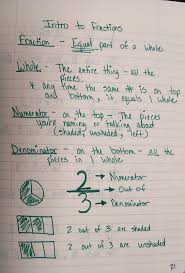 Intro to Fractions
Fraction - Equal part of a whole
Whole - The entire thing - all the
pieces.
* any time the same # is on top
and bottom, it equals 1 whole
Numerator - on the top - The pieces
you're naming or talking about
(shaded, unshaded, "left)
Denominator - on the bottom - all the
pieces in 1 whole
2 → Numerator
→ Out of
3 → Denominator
2 out of 3 are shaded
2 out of 3 are unshaded
21